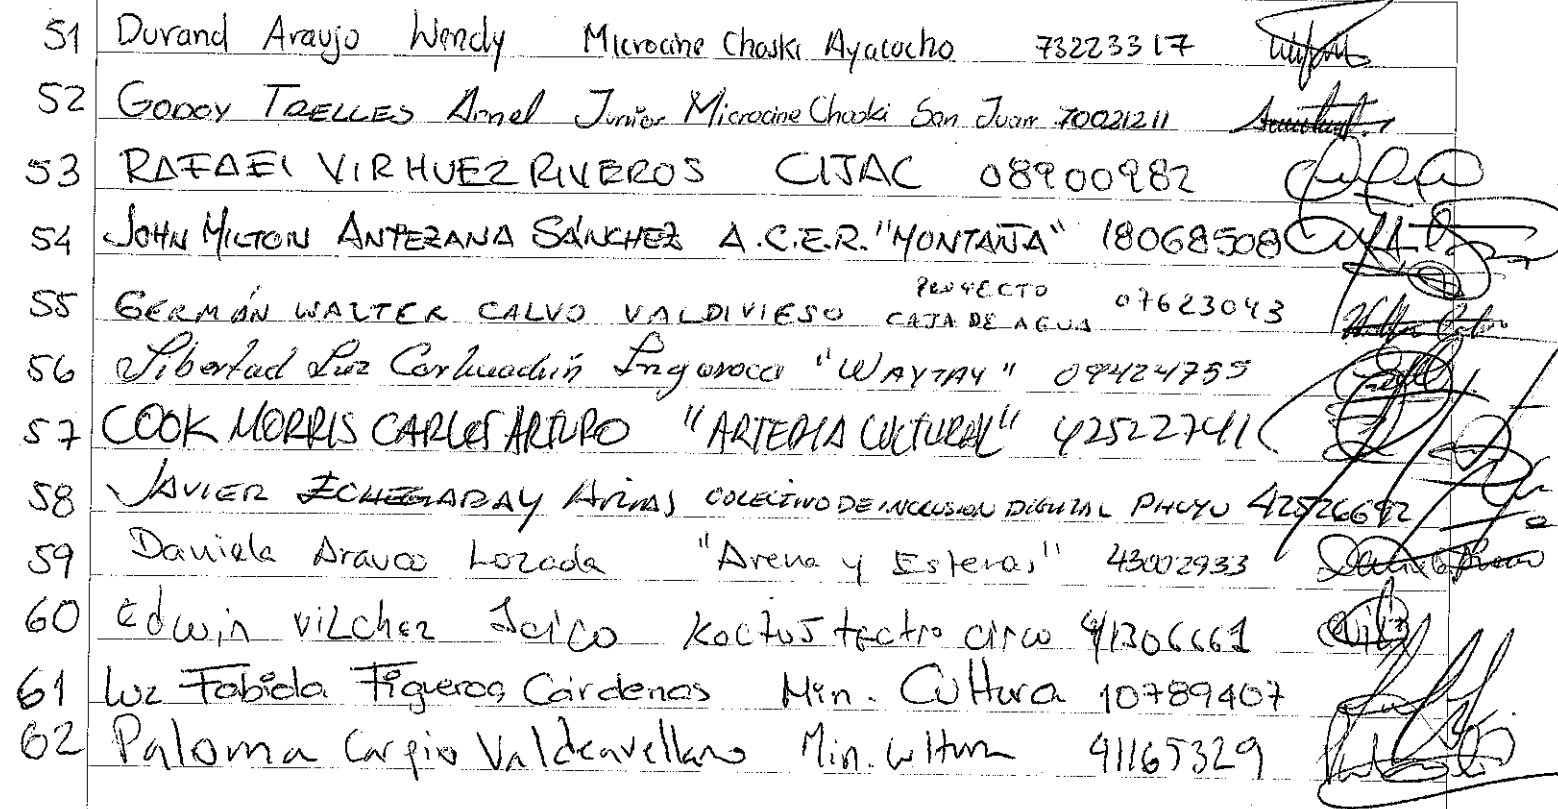 51 Durand Araujo Wendy Microcine Chaski Ayacucho 73223317
52 GODOY TRELLES Arnel Junior Microcine Chaski San Juan 70021211
53 RAFAEL VIRHUEZ RIVEROS CIJAC 08900982
54 JOHN MILTON ANTEZANA SÁNCHEZ A.C.E.R. "MONTAÑA" 18068508
55 GERMÁN WALTER CALVO VALDIVIESO PROYECTO CAJA DE AGUA 07623043
56 Libertad Luz Carhuachín "WAYTAY" 09424755
57 COOK MORRIS CARLOS ARTURO "ARTERIA CULTURAL" 42522741
58 JAVIER ECHEGARAY ARIAS COLECTIVO DE INCLUSION DIGITAL PHUYU 42526692
59 Daniela Arauco Lozada "Arena y Esteras" 43002933
60 Edwin Vilchez Kactus teatro circo 41306661
61 Luz Fabiola Figueroa Cárdenas Min. Cultura 10789407
62 Paloma Carpio Valdeavellano Min. Cultura 41165329